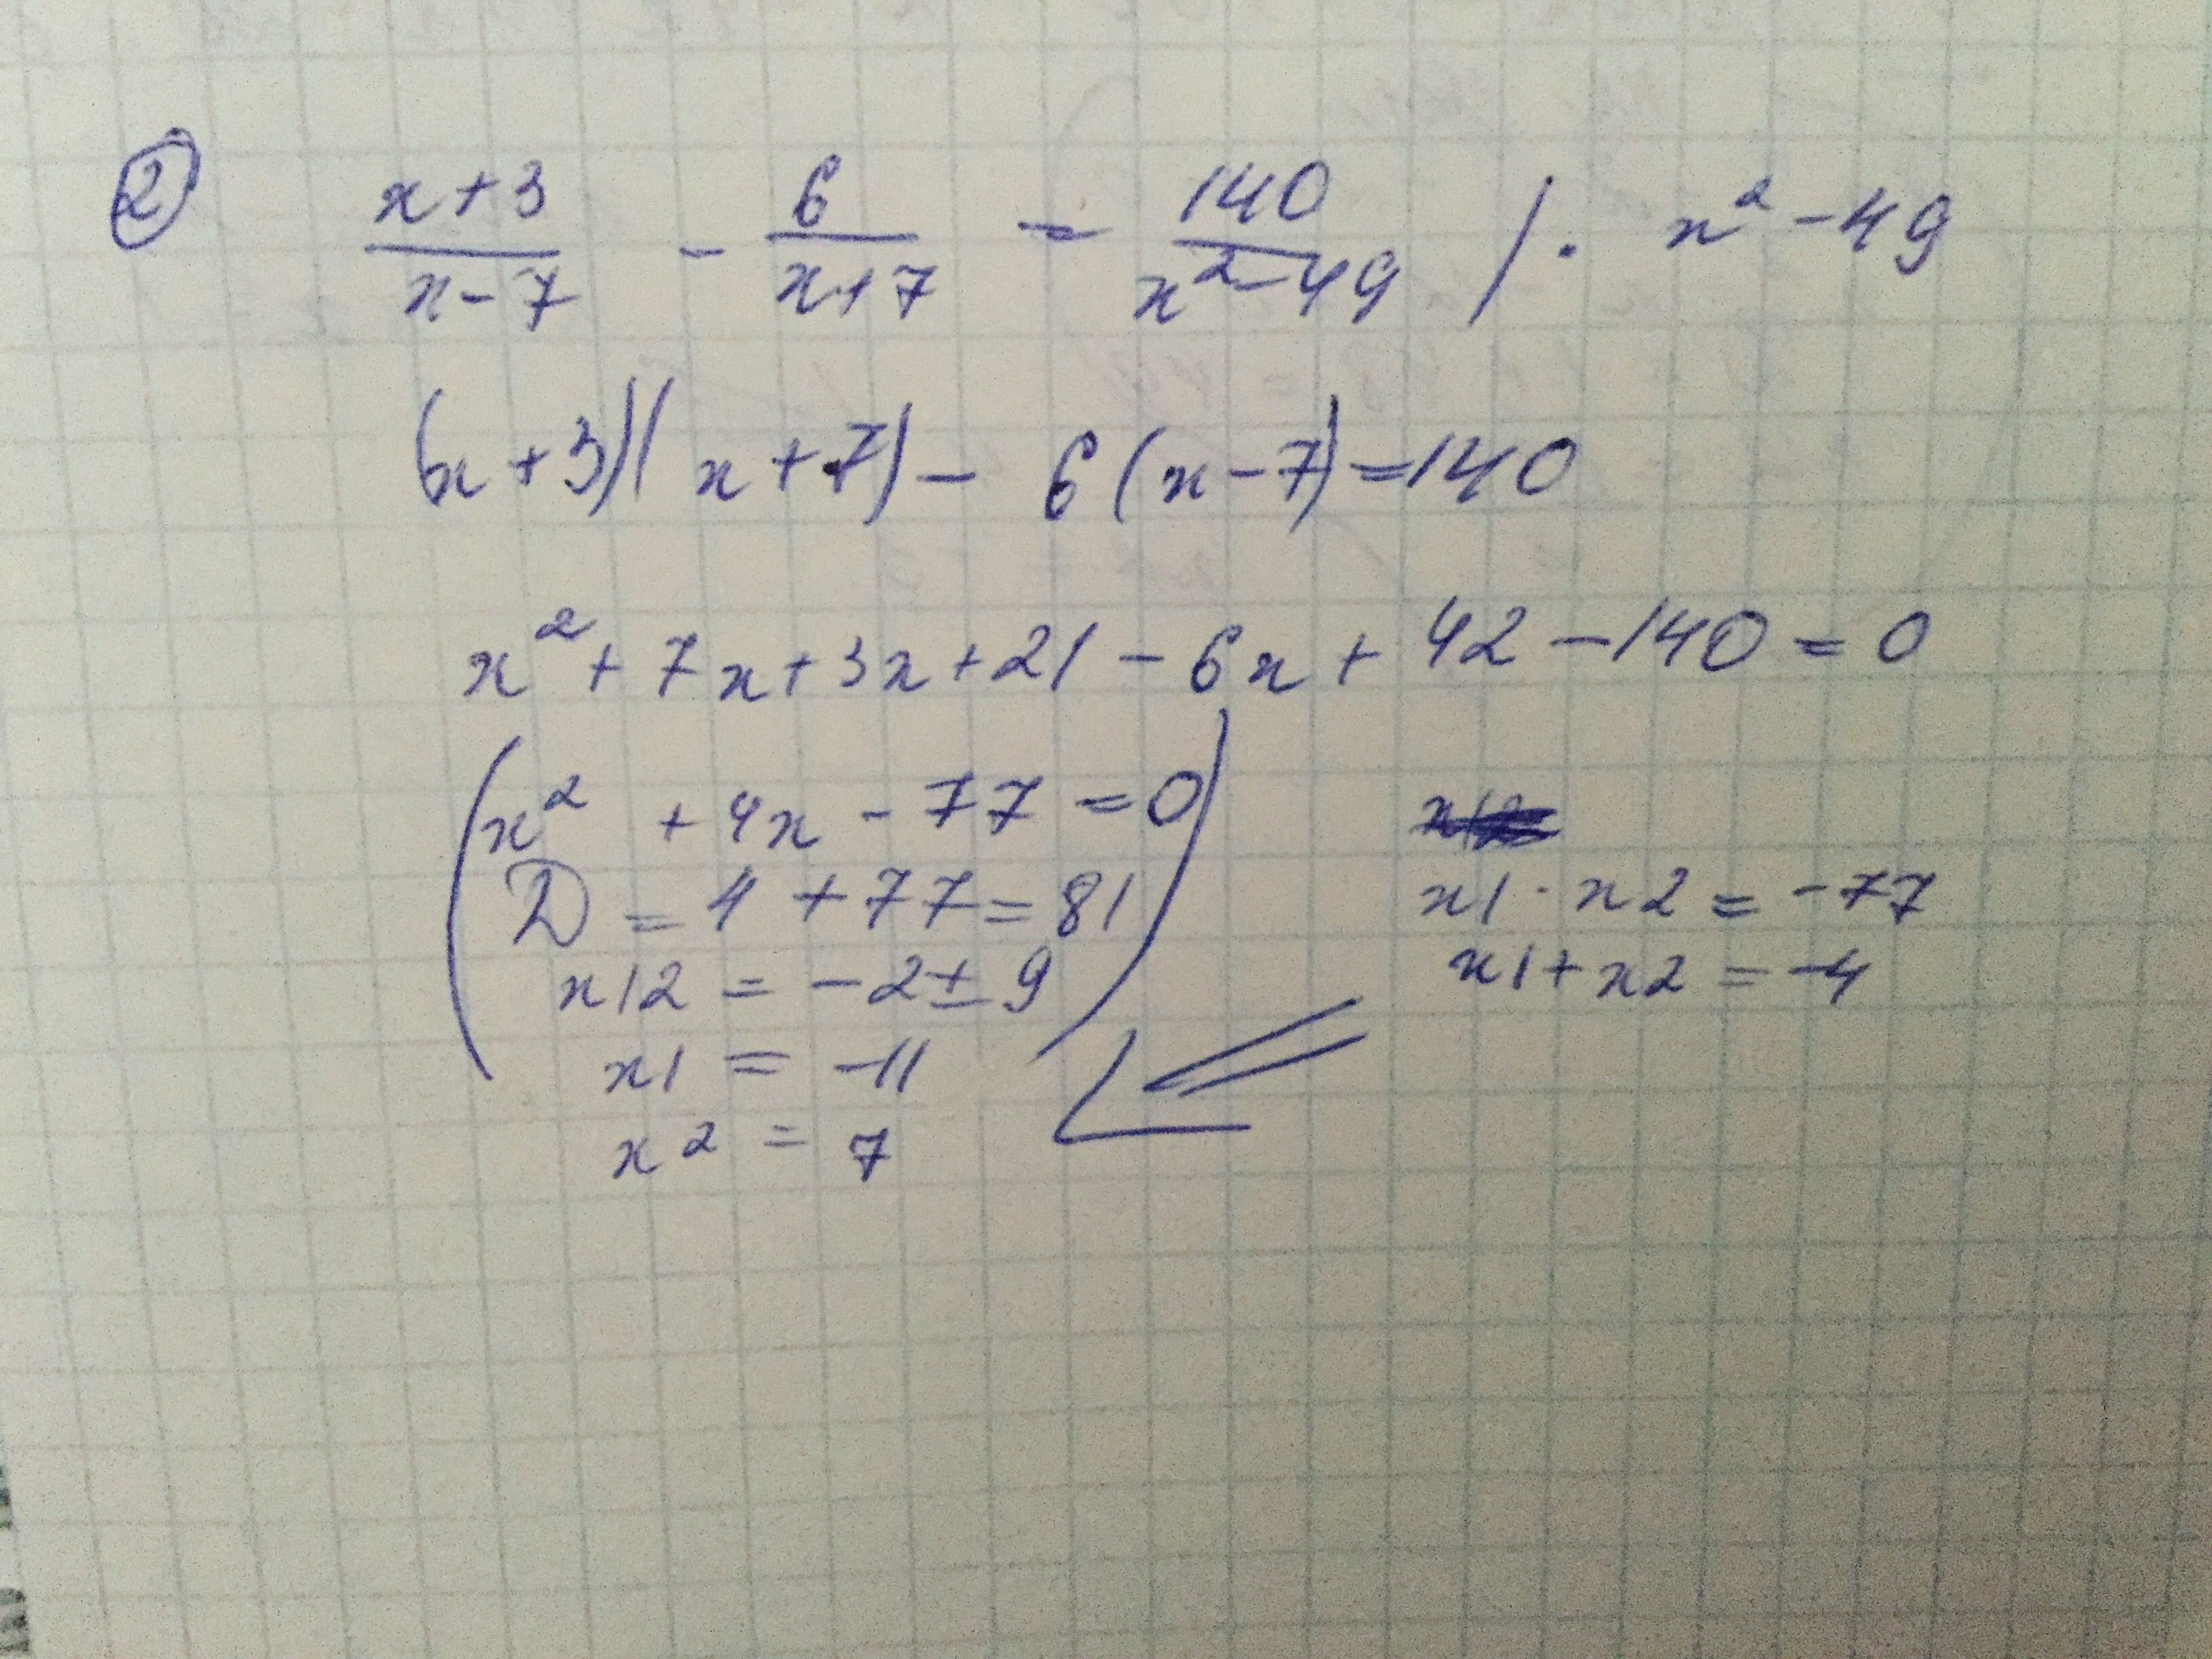 ② (x+3)/(x-7) - 6/(x+7) = 140/(x²-49) / · x²-49
(x+3)(x+7) - 6(x-7)=140
x²+7x+3x+21-6x+42-140=0
x² +4x-77=0
D=4+77=81
x12=-2±9
x1=-11
x2=7
x1·x2=-77
x1+x2=-4